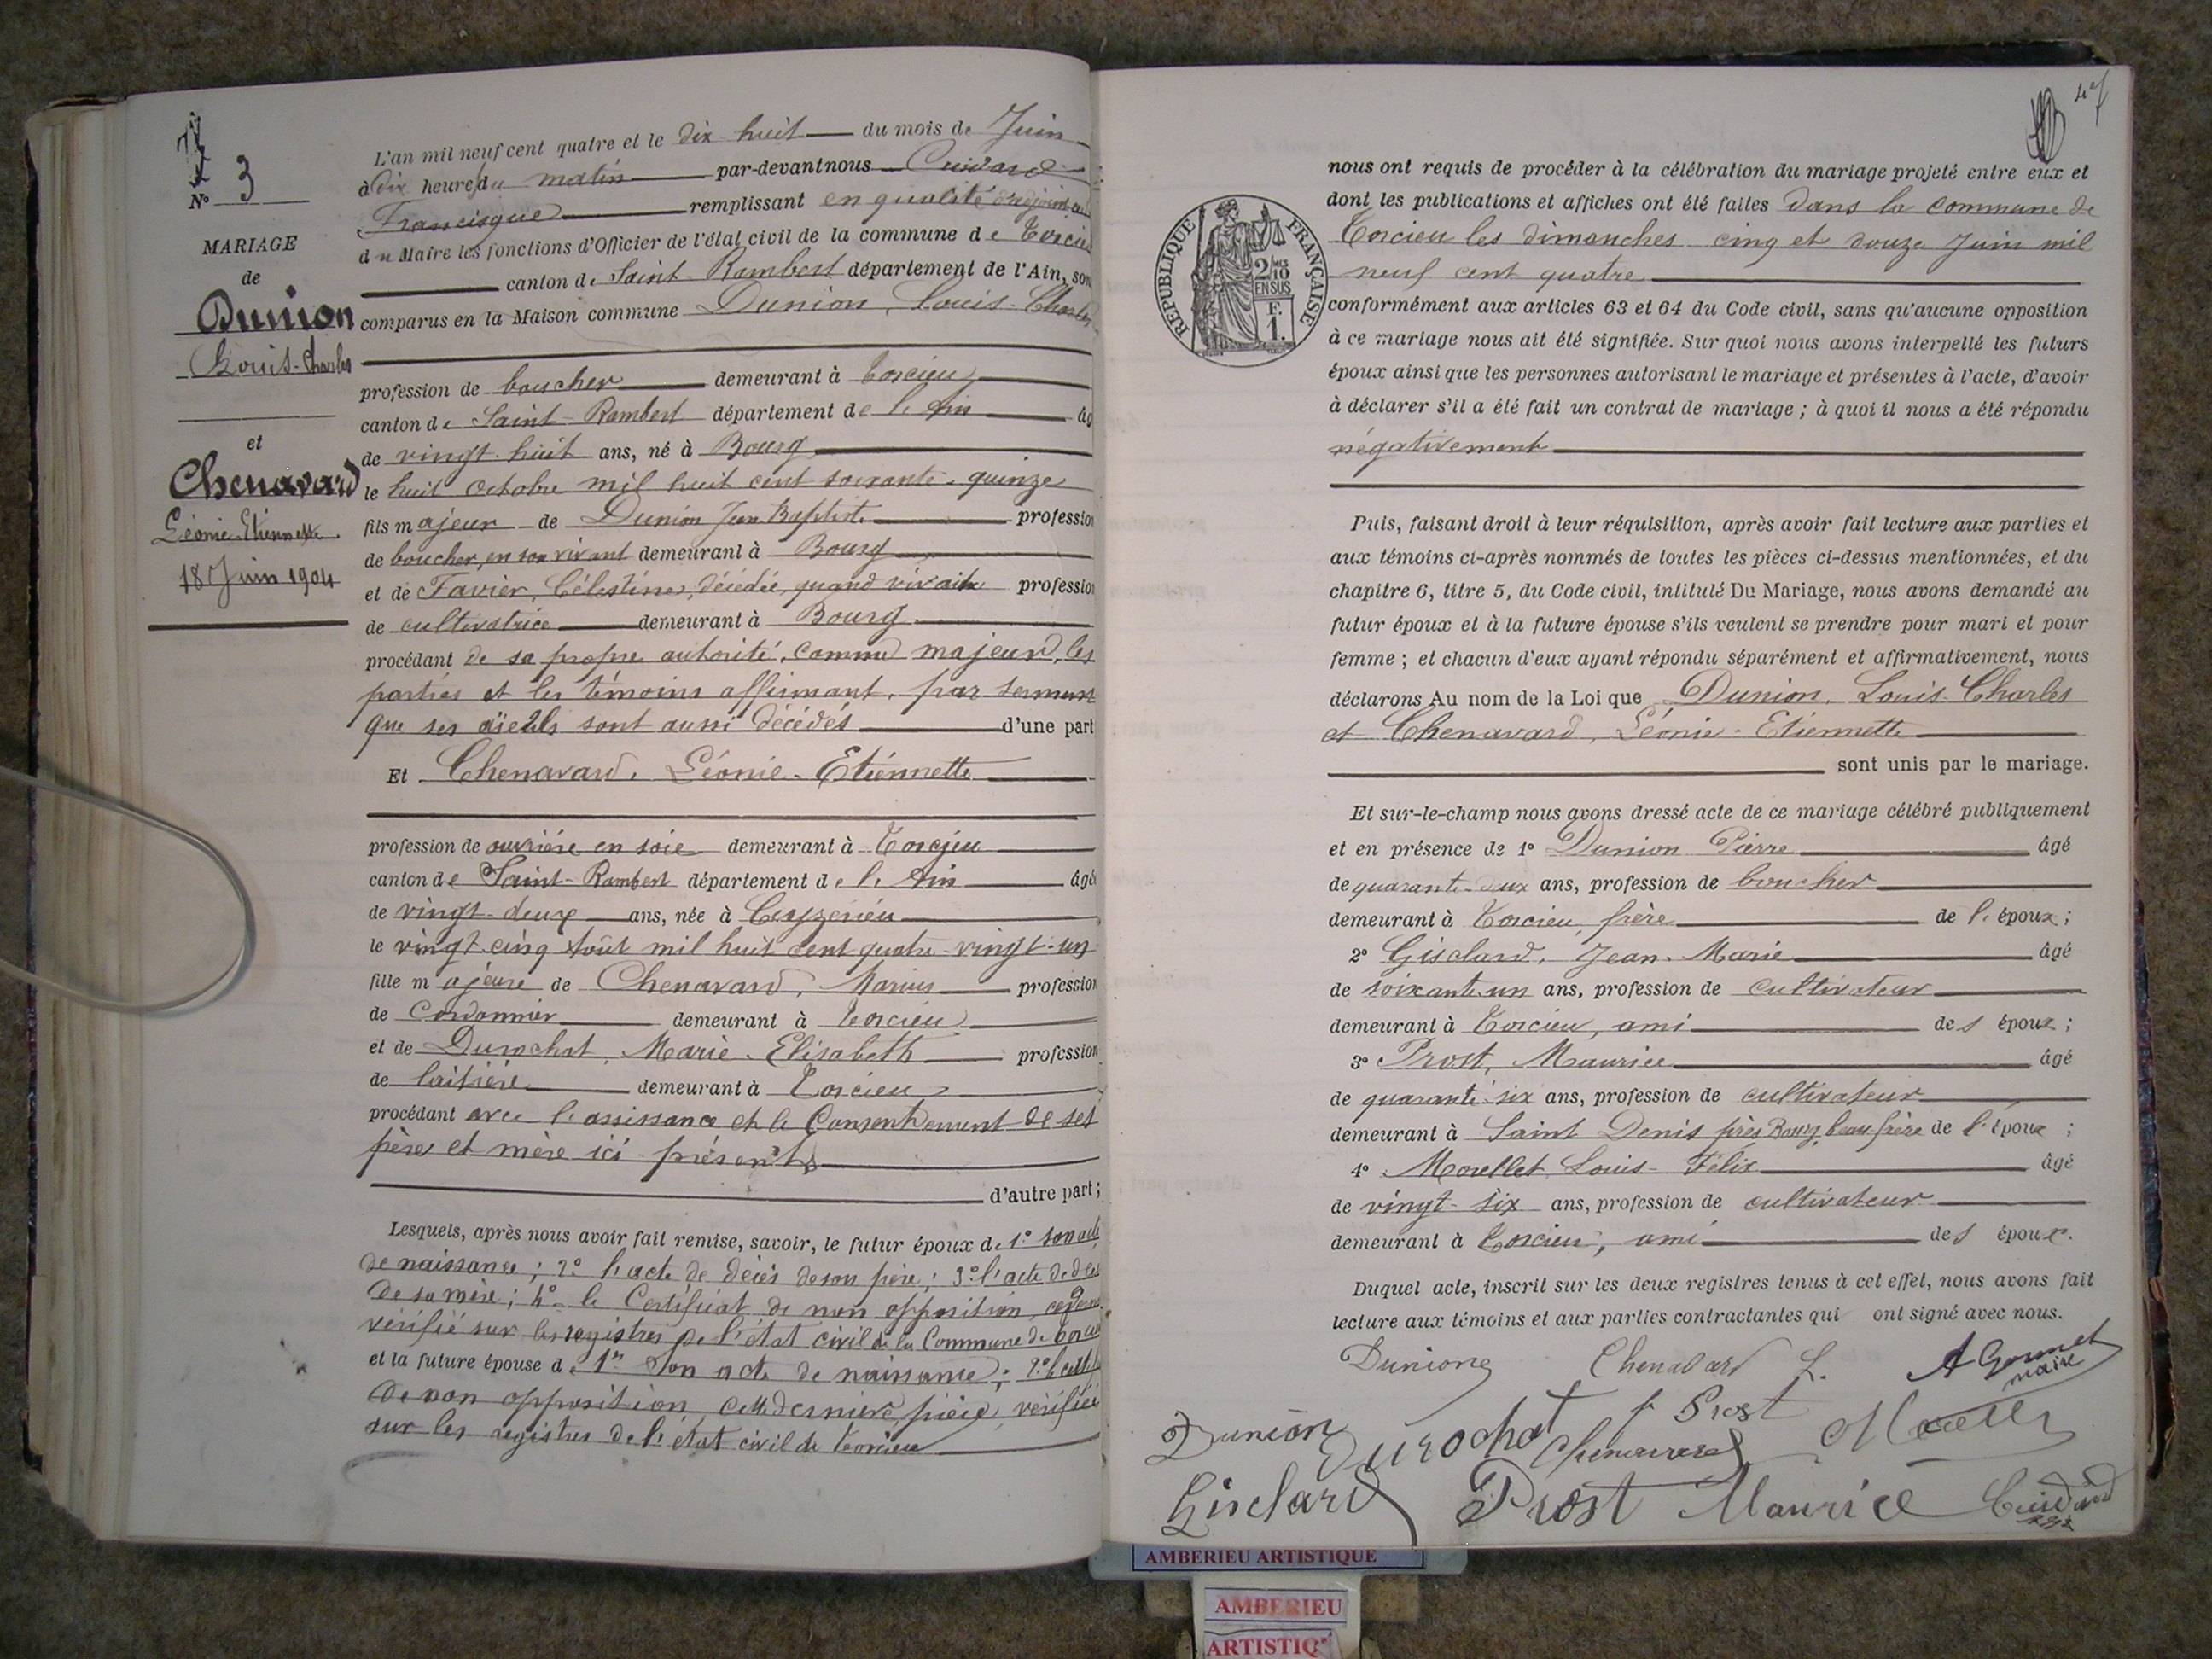 N° 3
MARIAGE
de
Dunion
Louis-Charles
et
Chenavard
Léonie-Etiennette
18 Juin 1904
L'an mil neuf cent quatre et le dix huit du mois de Juin
à dix heures du matin par-devant nous Cuidard
Francisque remplissant en qualité d'adjoint
du Maire les fonctions d'Officier de l'état civil de la commune de Torcieu
canton de Saint-Rambert département de l'Ain, son
comparus en la Maison commune Dunion, Louis-Charles
profession de boucher demeurant à Torcieu
canton de Saint-Rambert département de l'Ain âg
de vingt-huit ans, né à Bourg
le huit Octobre mil huit cent soixante-quinze
fils majeur de Dunion Jean Baptiste profession
de boucher, en son vivant demeurant à Bourg
et de Favier, Célestine, décédée, quand vivait profession
de cultivatrice demeurant à Bourg
procédant de sa propre autorité, comme majeur, les
parties et les témoins affirmant, par serment
que ses aïeuls sont aussi décédés d'une part
Et Chenavard, Léonie-Etiennette
profession de ouvrière en soie demeurant à Torcieu
canton de Saint-Rambert département de l'Ain âgé
de vingt-deux ans, née à Ceyzérieu
le vingt-cinq Août mil huit cent quatre-vingt-un
fille majeure de Chenavard, Marius profession
de Cordonnier demeurant à Torcieu
et de Durochat, Marie-Elisabeth profession
de laitière demeurant à Torcieu
procédant avec l'assissance et le Consentement de ses
père et mère ici présents
d'autre part;
Lesquels, après nous avoir fait remise, savoir, le futur époux de 1° son acte
de naissance; 2° l'acte de décès de son père; 3° l'acte de décès
de sa mère; 4° le Certificat de non opposition,
vérifié sur les registres de l'état civil de la Commune de Torcieu
et la future épouse de 1° Son acte de naissance; 2° le certif
de non opposition, cette dernière pièce vérifiée
sur les registres de l'état civil de Torcieu
47
RÉPUBLIQUE FRANÇAISE
2/10 EN SUS
F. 1.
nous ont requis de procéder à la célébration du mariage projeté entre eux et
dont les publications et affiches ont été faites dans la commune de
Torcieu les dimanches cinq et douze Juin mil
neuf cent quatre
conformément aux articles 63 et 64 du Code civil, sans qu'aucune opposition
à ce mariage nous ait été signifiée. Sur quoi nous avons interpellé les futurs
époux ainsi que les personnes autorisant le mariage et présentes à l'acte, d'avoir
à déclarer s'il a été fait un contrat de mariage; à quoi il nous a été répondu
négativement
Puis, faisant droit à leur réquisition, après avoir fait lecture aux parties et
aux témoins ci-après nommés de toutes les pièces ci-dessus mentionnées, et du
chapitre 6, titre 5, du Code civil, intitulé Du Mariage, nous avons demandé au
futur époux et à la future épouse s'ils veulent se prendre pour mari et pour
femme; et chacun d'eux ayant répondu séparément et affirmativement, nous
déclarons Au nom de la Loi que Dunion, Louis-Charles
et Chenavard, Léonie-Etiennette
sont unis par le mariage.
Et sur-le-champ nous avons dressé acte de ce mariage célébré publiquement
et en présence de 1° Dunion Pierre âgé
de quarante-deux ans, profession de boucher
demeurant à Torcieu, frère de l'époux;
2° Gisclard, Jean-Marie âgé
de soixante-un ans, profession de cultivateur
demeurant à Torcieu, ami des époux;
3° Prost, Maurice âgé
de quarante-six ans, profession de cultivateur
demeurant à Saint Denis près Bourg, beau frère de l'époux;
4° Morellet Louis-Félix âgé
de vingt-six ans, profession de cultivateur
demeurant à Torcieu, ami des époux.
Duquel acte, inscrit sur les deux registres tenus à cet effet, nous avons fait
lecture aux témoins et aux parties contractantes qui ont signé avec nous.
Dunion Chenavard L.
maire
Dunion Durochat Prost
Chenavard
Gisclard Prost Maurice Cuidard
AMBERIEU ARTISTIQUE
AMBERIEU
ARTISTIQ